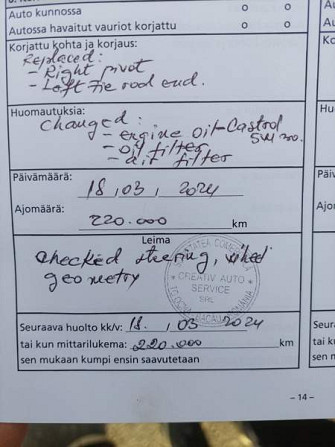 Auto kunnossa o o
Autossa havaitut vauriot korjattu o o
Korjattu kohta ja korjaus:
Replaced:
- Right pivot
- Left tie rod end.
Huomautuksia:
Changed:
- engine oil - Castrol
5W30.
- oil filter
- air filter
Päivämäärä:
18, 03, 2024
Ajomäärä:
220.000 km
Leima
checked steering, wheel
geometry
CREATIV AUTO
SERVICE
SRL
Seuraava huolto kk/v: 18. , 03 2024
tai kun mittarilukema: 220.000 km
sen mukaan kumpi ensin saavutetaan
– 14 –